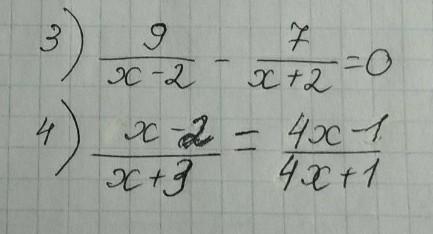 3) 9/(x-2) - 7/(x+2) = 0
4) (x-2)/(x+3) = (4x-1)/(4x+1)